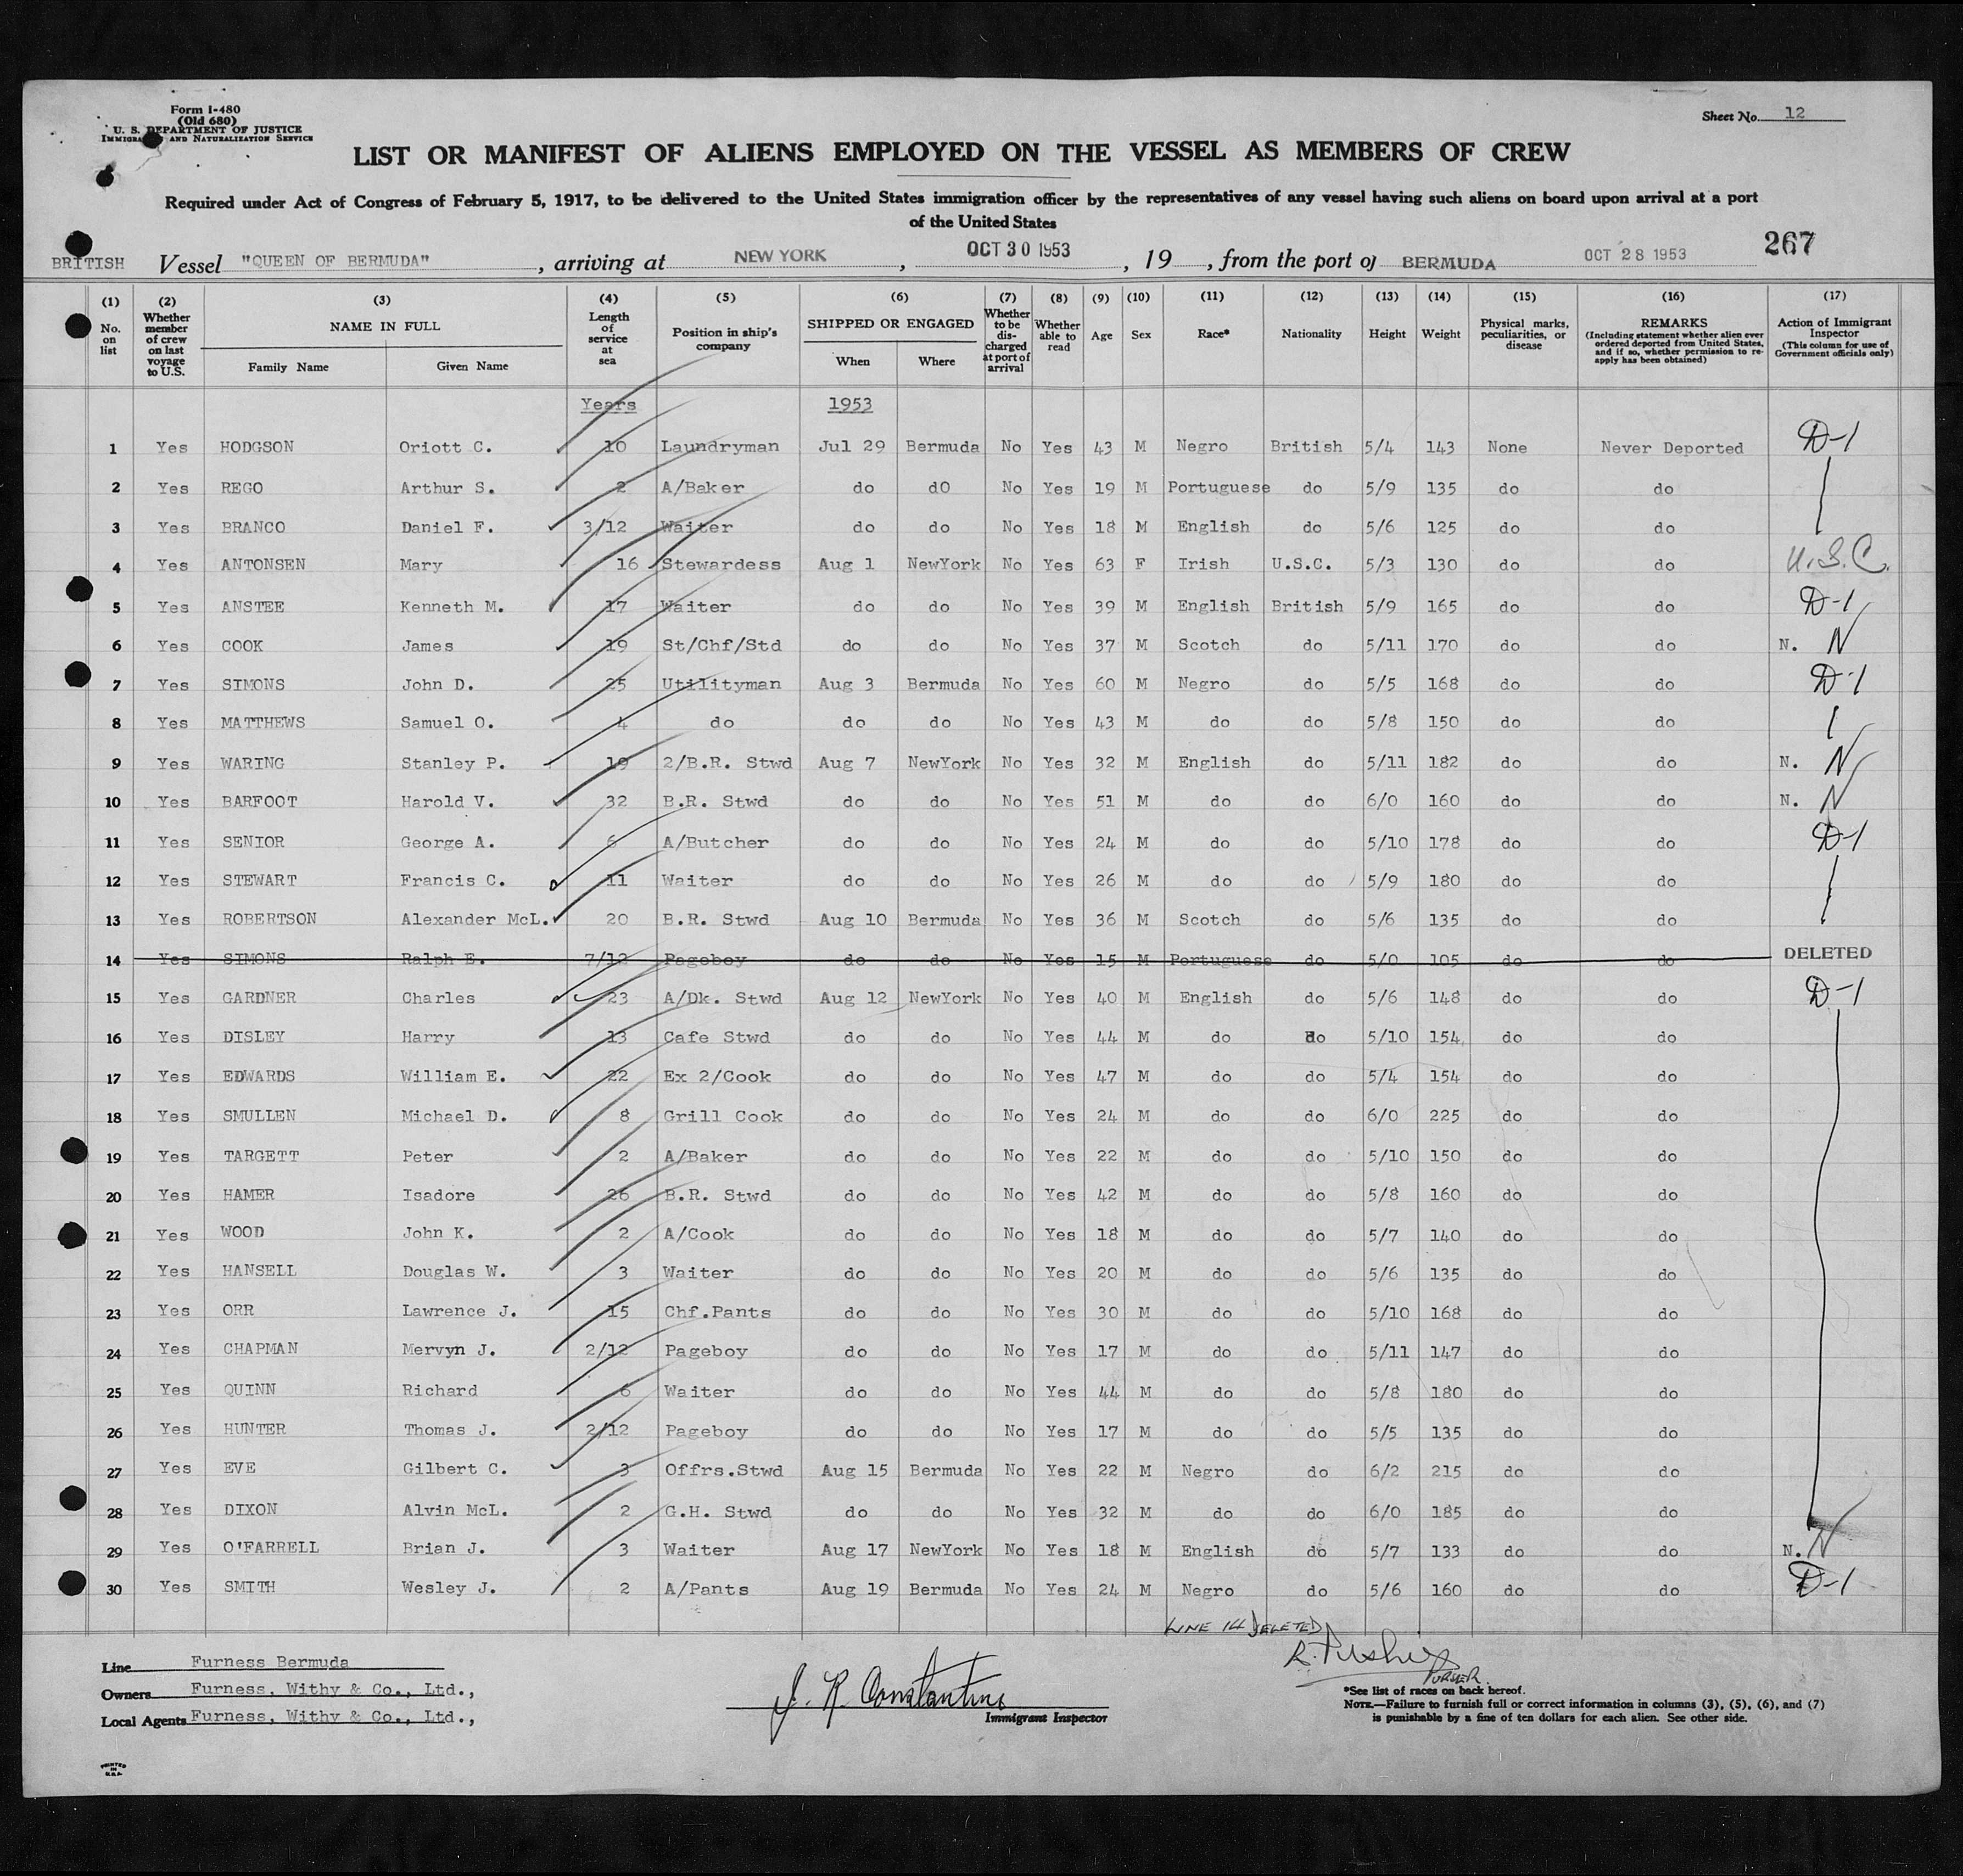 Form I-480
(Old 680)
U. S. DEPARTMENT OF JUSTICE
IMMIGRA AND NATURALIZATION SERVICE
Sheet No. 12
LIST OR MANIFEST OF ALIENS EMPLOYED ON THE VESSEL AS MEMBERS OF CREW
Required under Act of Congress of February 5, 1917, to be delivered to the United States immigration officer by the representatives of any vessel having such aliens on board upon arrival at a port
of the United States
BRITISH Vessel "QUEEN OF BERMUDA", arriving at NEW YORK, OCT 30 1953, 19, from the port of BERMUDA OCT 28 1953 267
(1) No. on list
(2) Whether member of crew on last voyage to U.S.
(3) NAME IN FULL Family Name Given Name
(4) Length of service at sea
(5) Position in ship's company
(6) SHIPPED OR ENGAGED When Where
(7) Whether to be discharged at port of arrival
(8) Whether able to read
(9) Age
(10) Sex
(11) Race*
(12) Nationality
(13) Height
(14) Weight
(15) Physical marks, peculiarities, or disease
(16) REMARKS (Including statement whether alien ever ordered deported from United States, and if so, whether permission to reapply has been obtained)
(17) Action of Immigrant Inspector (This column for use of Government officials only)
Years 1953
1 Yes HODGSON Oriott C. 10 Laundryman Jul 29 Bermuda No Yes 43 M Negro British 5/4 143 None Never Deported D-1
2 Yes REGO Arthur S. 2 A/Baker do dO No Yes 19 M Portuguese do 5/9 135 do do
3 Yes BRANCO Daniel F. 3/12 Waiter do do No Yes 18 M English do 5/6 125 do do
4 Yes ANTONSEN Mary 16 Stewardess Aug 1 NewYork No Yes 63 F Irish U.S.C. 5/3 130 do do U.S.C.
5 Yes ANSTEE Kenneth M. 17 Waiter do do No Yes 39 M English British 5/9 165 do do D-1
6 Yes COOK James 19 St/Chf/Std do do No Yes 37 M Scotch do 5/11 170 do do N. N
7 Yes SIMONS John D. 25 Utilityman Aug 3 Bermuda No Yes 60 M Negro do 5/5 168 do do D-1
8 Yes MATTHEWS Samuel O. 4 do do do No Yes 43 M do do 5/8 150 do do
9 Yes WARING Stanley P. 19 2/B.R. Stwd Aug 7 NewYork No Yes 32 M English do 5/11 182 do do N. N
10 Yes BARFOOT Harold V. 32 B.R. Stwd do do No Yes 51 M do do 6/0 160 do do N. N
11 Yes SENIOR George A. 6 A/Butcher do do No Yes 24 M do do 5/10 178 do do D-1
12 Yes STEWART Francis C. 11 Waiter do do No Yes 26 M do do 5/9 180 do do
13 Yes ROBERTSON Alexander McL. 20 B.R. Stwd Aug 10 Bermuda No Yes 36 M Scotch do 5/6 135 do do
14 Yes SIMONS Ralph E. 7/12 Pageboy do do No Yes 15 M Portuguese do 5/0 105 do do DELETED
15 Yes GARDNER Charles 23 A/Dk. Stwd Aug 12 NewYork No Yes 40 M English do 5/6 148 do do D-1
16 Yes DISLEY Harry 13 Cafe Stwd do do No Yes 44 M do do 5/10 154 do do
17 Yes EDWARDS William E. 22 Ex 2/Cook do do No Yes 47 M do do 5/4 154 do do
18 Yes SMULLEN Michael D. 8 Grill Cook do do No Yes 24 M do do 6/0 225 do do
19 Yes TARGETT Peter 2 A/Baker do do No Yes 22 M do do 5/10 150 do do
20 Yes HAMER Isadore 26 B.R. Stwd do do No Yes 42 M do do 5/8 160 do do
21 Yes WOOD John K. 2 A/Cook do do No Yes 18 M do do 5/7 140 do do
22 Yes HANSELL Douglas W. 3 Waiter do do No Yes 20 M do do 5/6 135 do do
23 Yes ORR Lawrence J. 15 Chf.Pants do do No Yes 30 M do do 5/10 168 do do
24 Yes CHAPMAN Mervyn J. 2/12 Pageboy do do No Yes 17 M do do 5/11 147 do do
25 Yes QUINN Richard 6 Waiter do do No Yes 44 M do do 5/8 180 do do
26 Yes HUNTER Thomas J. 2/12 Pageboy do do No Yes 17 M do do 5/5 135 do do
27 Yes EVE Gilbert C. 3 Offrs.Stwd Aug 15 Bermuda No Yes 22 M Negro do 6/2 215 do do
28 Yes DIXON Alvin McL. 2 G.H. Stwd do do No Yes 32 M do do 6/0 185 do do
29 Yes O'FARRELL Brian J. 3 Waiter Aug 17 NewYork No Yes 18 M English do 5/7 133 do do N. N
30 Yes SMITH Wesley J. 2 A/Pants Aug 19 Bermuda No Yes 24 M Negro do 5/6 160 do do D-1
LINE 14 DELETED
PURSER.
Line Furness Bermuda
Owners Furness, Withy & Co., Ltd.,
Local Agents Furness, Withy & Co., Ltd.,
J. R. Constantine
Immigrant Inspector
*See list of races on back hereof.
NOTE.—Failure to furnish full or correct information in columns (3), (5), (6), and (7)
is punishable by a fine of ten dollars for each alien. See other side.
PRINTED
IN
U.S.A.